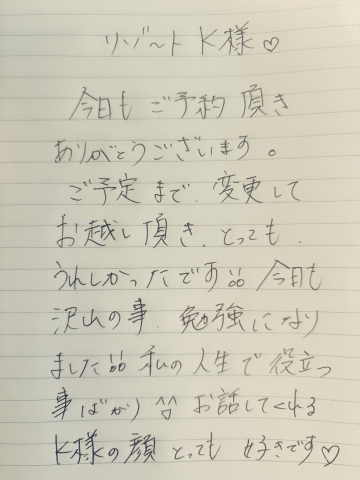 リゾートK様♡
今日もご予約頂き
ありがとうございます。
ご予定まで、変更して
お越し頂き、とっても、
うれしかったです♧♧今日も
沢山の事、勉強になり
ました♧♧私の人生で役立つ
事ばかり^^お話してくれる
K様の顔とっても好きです♡